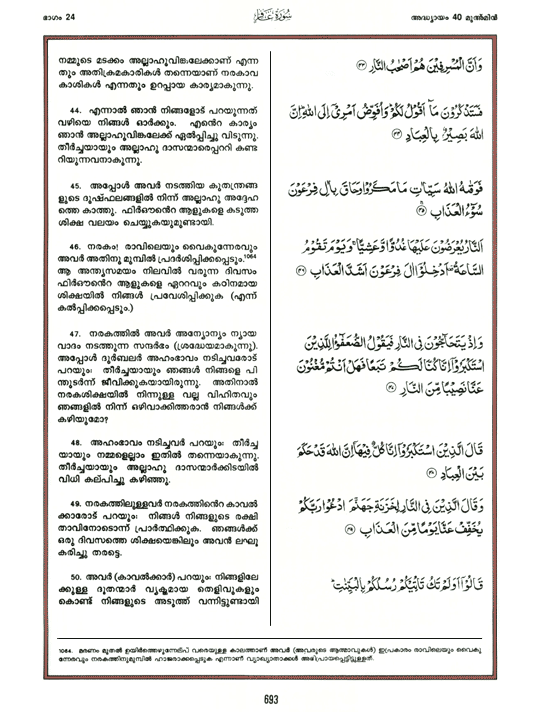 ഭാഗം 24
سُورَةُ غَافِر
അദ്ധ്യായം 40 മുഅ്മിൻ
നമ്മുടെ മടക്കം അല്ലാഹുവിങ്കലേക്കാണ് എന്ന
തും അതിക്രമകാരികൾ തന്നെയാണ് നരകാവ
കാശികൾ എന്നതും ഉറപ്പായ കാര്യമാകുന്നു.
44. എന്നാൽ ഞാൻ നിങ്ങളോട് പറയുന്നത്
വഴിയെ നിങ്ങൾ ഓർക്കും. എന്റെ കാര്യം
ഞാൻ അല്ലാഹുവിങ്കലേക്ക് ഏൽപ്പിച്ചു വിടുന്നു.
തീർച്ചയായും അല്ലാഹു ദാസന്മാരെപ്പററി കണ്ട
റിയുന്നവനാകുന്നു.
45. അപ്പോൾ അവർ നടത്തിയ കുതന്ത്രങ്ങ
ളുടെ ദുഷ്ഫലങ്ങളിൽ നിന്ന് അല്ലാഹു അദ്ദേഹ
ത്തെ കാത്തു. ഫിർഔന്റെ ആളുകളെ കടുത്ത
ശിക്ഷ വലയം ചെയ്യുകയുമുണ്ടായി.
46. നരകം! രാവിലെയും വൈകുന്നേരവും
അവർ അതിനു മുമ്പിൽ പ്രദർശിപ്പിക്കപ്പെടും.1064
ആ അന്ത്യസമയം നിലവിൽ വരുന്ന ദിവസം
ഫിർഔന്റെ ആളുകളെ ഏററവും കഠിനമായ
ശിക്ഷയിൽ നിങ്ങൾ പ്രവേശിപ്പിക്കുക (എന്ന്
കൽപിക്കപ്പെടും.)
47. നരകത്തിൽ അവർ അന്യോന്യം ന്യായ
വാദം നടത്തുന്ന സന്ദർഭം (ശ്രദ്ധേയമാകുന്നു).
അപ്പോൾ ദുർബലർ അഹംഭാവം നടിച്ചവരോട്
പറയും: തീർച്ചയായും ഞങ്ങൾ നിങ്ങളെ പി
ന്തുടർന്ന് ജീവിക്കുകയായിരുന്നു. അതിനാൽ
നരകശിക്ഷയിൽ നിന്നുള്ള വല്ല വിഹിതവും
ഞങ്ങളിൽ നിന്ന് ഒഴിവാക്കിത്തരാൻ നിങ്ങൾക്ക്
കഴിയുമോ?
48. അഹംഭാവം നടിച്ചവർ പറയും: തീർച്ച
യായും നമ്മളെല്ലാം ഇതിൽ തന്നെയാകുന്നു.
തീർച്ചയായും അല്ലാഹു ദാസന്മാർക്കിടയിൽ
വിധി കല്പിച്ചു കഴിഞ്ഞു.
49. നരകത്തിലുള്ളവർ നരകത്തിന്റെ കാവൽ
ക്കാരോട് പറയും: നിങ്ങൾ നിങ്ങളുടെ രക്ഷി
താവിനോടൊന്ന് പ്രാർത്ഥിക്കുക. ഞങ്ങൾക്ക്
ഒരു ദിവസത്തെ ശിക്ഷയെങ്കിലും അവൻ ലഘൂ
കരിച്ചു തരട്ടെ.
50. അവർ (കാവൽക്കാർ) പറയും: നിങ്ങളിലേ
ക്കുള്ള ദൂതന്മാർ വ്യക്തമായ തെളിവുകളും
കൊണ്ട് നിങ്ങളുടെ അടുത്ത് വന്നിട്ടുണ്ടായി
وَأَنَّ الْمُسْرِفِينَ هُمْ أَصْحَٰبُ النَّارِ ۝٤٣
فَسَتَذْكُرُونَ مَآ أَقُولُ لَكُمْ وَأُفَوِّضُ أَمْرِىٓ إِلَى اللَّهِ إِنَّ
اللَّهَ بَصِيرٌۢ بِالْعِبَادِ ۝٤٤
فَوَقَىٰهُ اللَّهُ سَيِّـَٔاتِ مَا مَكَرُوا وَحَاقَ بِـَٔالِ فِرْعَوْنَ
سُوٓءُ الْعَذَابِ ۝٤٥
النَّارُ يُعْرَضُونَ عَلَيْهَا غُدُوًّا وَعَشِيًّا وَيَوْمَ تَقُومُ
السَّاعَةُ أَدْخِلُوٓا ءَالَ فِرْعَوْنَ أَشَدَّ الْعَذَابِ ۝٤٦
وَإِذْ يَتَحَآجُّونَ فِى النَّارِ فَيَقُولُ الضُّعَفَٰٓؤُا لِلَّذِينَ
اسْتَكْبَرُوٓا إِنَّا كُنَّا لَكُمْ تَبَعًا فَهَلْ أَنتُم مُّغْنُونَ
عَنَّا نَصِيبًا مِّنَ النَّارِ ۝٤٧
قَالَ الَّذِينَ اسْتَكْبَرُوٓا إِنَّا كُلٌّ فِيهَآ إِنَّ اللَّهَ قَدْ حَكَمَ
بَيْنَ الْعِبَادِ ۝٤٨
وَقَالَ الَّذِينَ فِى النَّارِ لِخَزَنَةِ جَهَنَّمَ ادْعُوا رَبَّكُمْ
يُخَفِّفْ عَنَّا يَوْمًا مِّنَ الْعَذَابِ ۝٤٩
قَالُوٓا أَوَلَمْ تَكُ تَأْتِيكُمْ رُسُلُكُم بِالْبَيِّنَٰتِ
1064. മരണം മുതൽ ഉയിർത്തെഴുന്നേല്പ് വരെയുള്ള കാലത്താണ് അവർ (അവരുടെ ആത്മാവുകൾ) ഇപ്രകാരം രാവിലെയും വൈകു
ന്നേരവും നരകത്തിനുമുമ്പിൽ ഹാജരാക്കപ്പെടുക എന്നാണ് വ്യാഖ്യാതാക്കൾ അഭിപ്രായപ്പെട്ടിട്ടുള്ളത്.
693